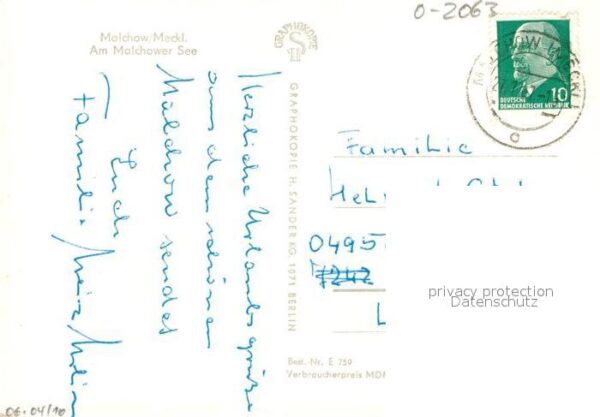 O-2063
Malchow/Meckl.
Am Malchower See
GRAPHOKOPIE
MALCHOW (MECKL)
10
DEUTSCHE
DEMOKRATISCHE REPUBLIK
Herzliche Urlaubsgrüße
aus dem schönen
Malchow sendet
Euch
Familie
GRAPHOKOPIE H. SANDER KG, 1071 BERLIN
Familie
0495
privacy protection
Datenschutz
Best.-Nr. E 759
Verbraucherpreis MDN
06-04/10